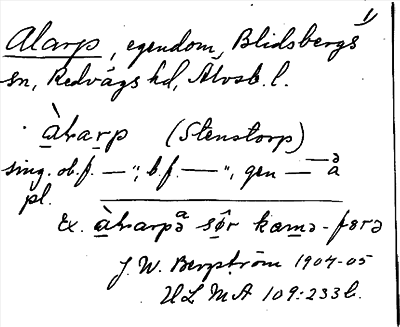 1)
Alarp, egendom, Blidsbergs
sn, Redvägs hd, Älvsb. l.
àlarp (Stenstorp)
sing. ob.f. — "; b.f. — ", gen —
pl.
Ex. sör kœmə-fɷrə
J. W. Bergström 1904-05
ULMA 109:233 b.